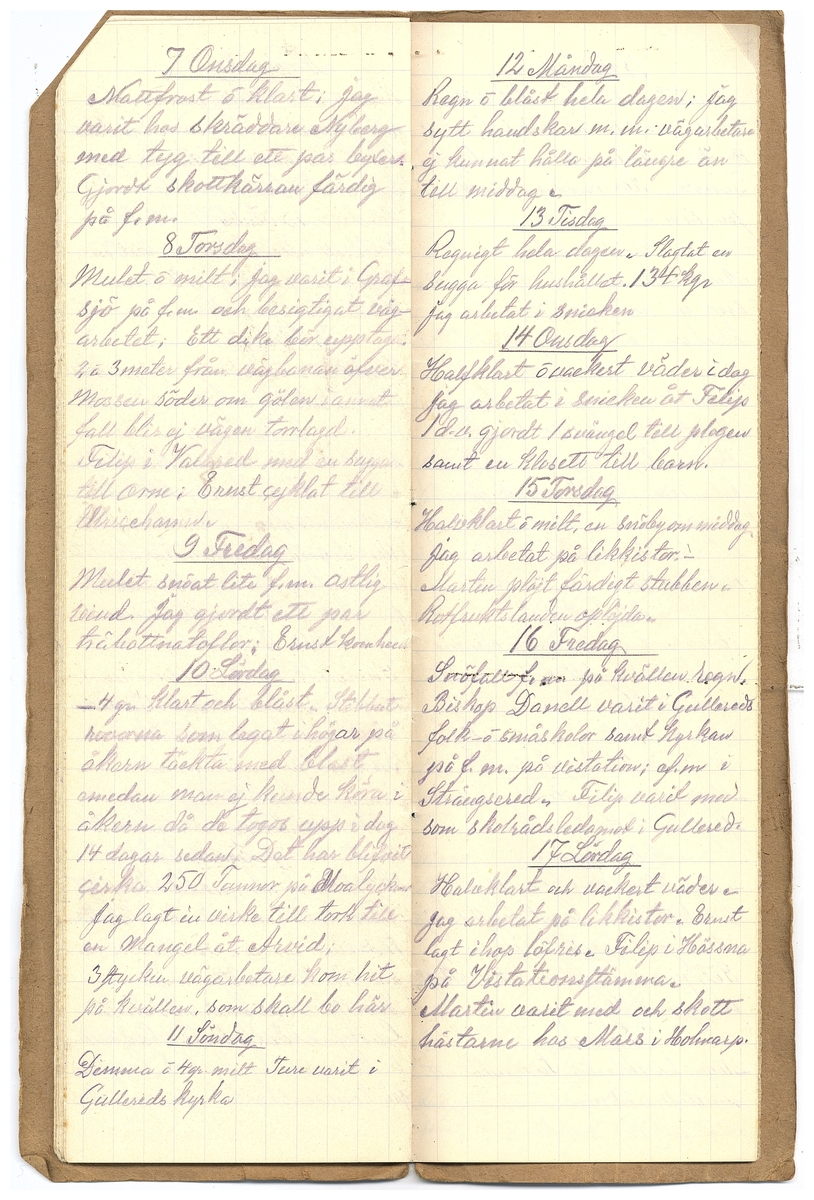 7 Onsdag
Nattfrost ö klart; jag
varit hos skräddare Nyberg
med tyg till ett par byxer.
Gjordt skottkärran färdig
på f.m.
8 Torsdag
Mulet ö milt; jag varit i Graf-
sjö på f.m. och besigtigat väg-
arbetet; Ett dike bör upptaga:
2 à 3 meter från vägbanan öfver
Mossen söder om gölen i annat
fall blir ej vägen torrlagd.
Filip i Vallered med en sugga
till orne; Ernst cyklat till
Ulricehamn.
9 Fredag
Mulet snöat lite f.m. ostlig
vind. Jag gjordt ett par
träbottnatofflor; Ernst kom hem
10 Lördag
– 4 gr. klart och blåst.
rovorna som legat i högar på
åkern täckta med blast
emedan man ej kunde köra i
åkern då de togos upp i dag
14 dagar sedan; Det har blifvit
cirka 250 Tunnor på
Jag lagt in virke till tork till
en Mangel åt Arvid;
3 stycken vägarbetare kom hit
på kvällen, som skall bo här
11 Söndag
Dimma ö 4 gr. milt Ture varit i
Gullereds kyrka
12 Måndag
Regn ö blåst hela dagen; jag
sytt handskar m. m. vägarbetare
ej kunnat hålla på längre än
till middag.
13 Tisdag
Regnigt hela dagen. Slagtat en
sugga för hushållet. 134 kgr
jag arbetat i smieken
14 Onsdag
Halfklart ö vackert väder i dag
jag arbetat i smieken åt Filip
1 d.v. gjordt 1 svängel till plogen
samt en klosett till barn.
15 Torsdag
Halvklart ö milt, en snöby om middag
jag arbetat på likkistor. –
Martin plöjt färdigt stubben.
Rotfruktslanden oplöjda.
16 Fredag
Snöfall f.m. på kvällen regn.
Biskop Danell varit i Gullereds
folk- ö småskolor samt kyrkan
på f.m. på vistation; ef.m i
Strängsered. Filip varit med
som skolrådsledamot i Gullered.
17 Lördag
Halvklart och vackert väder.
jag arbetat på likkistor. Ernst
lagt ihop löfris. Filip i Hössna
på Vistationsstämma.
Martin varit med och skott
hästarne hos Mars i Holmarp.